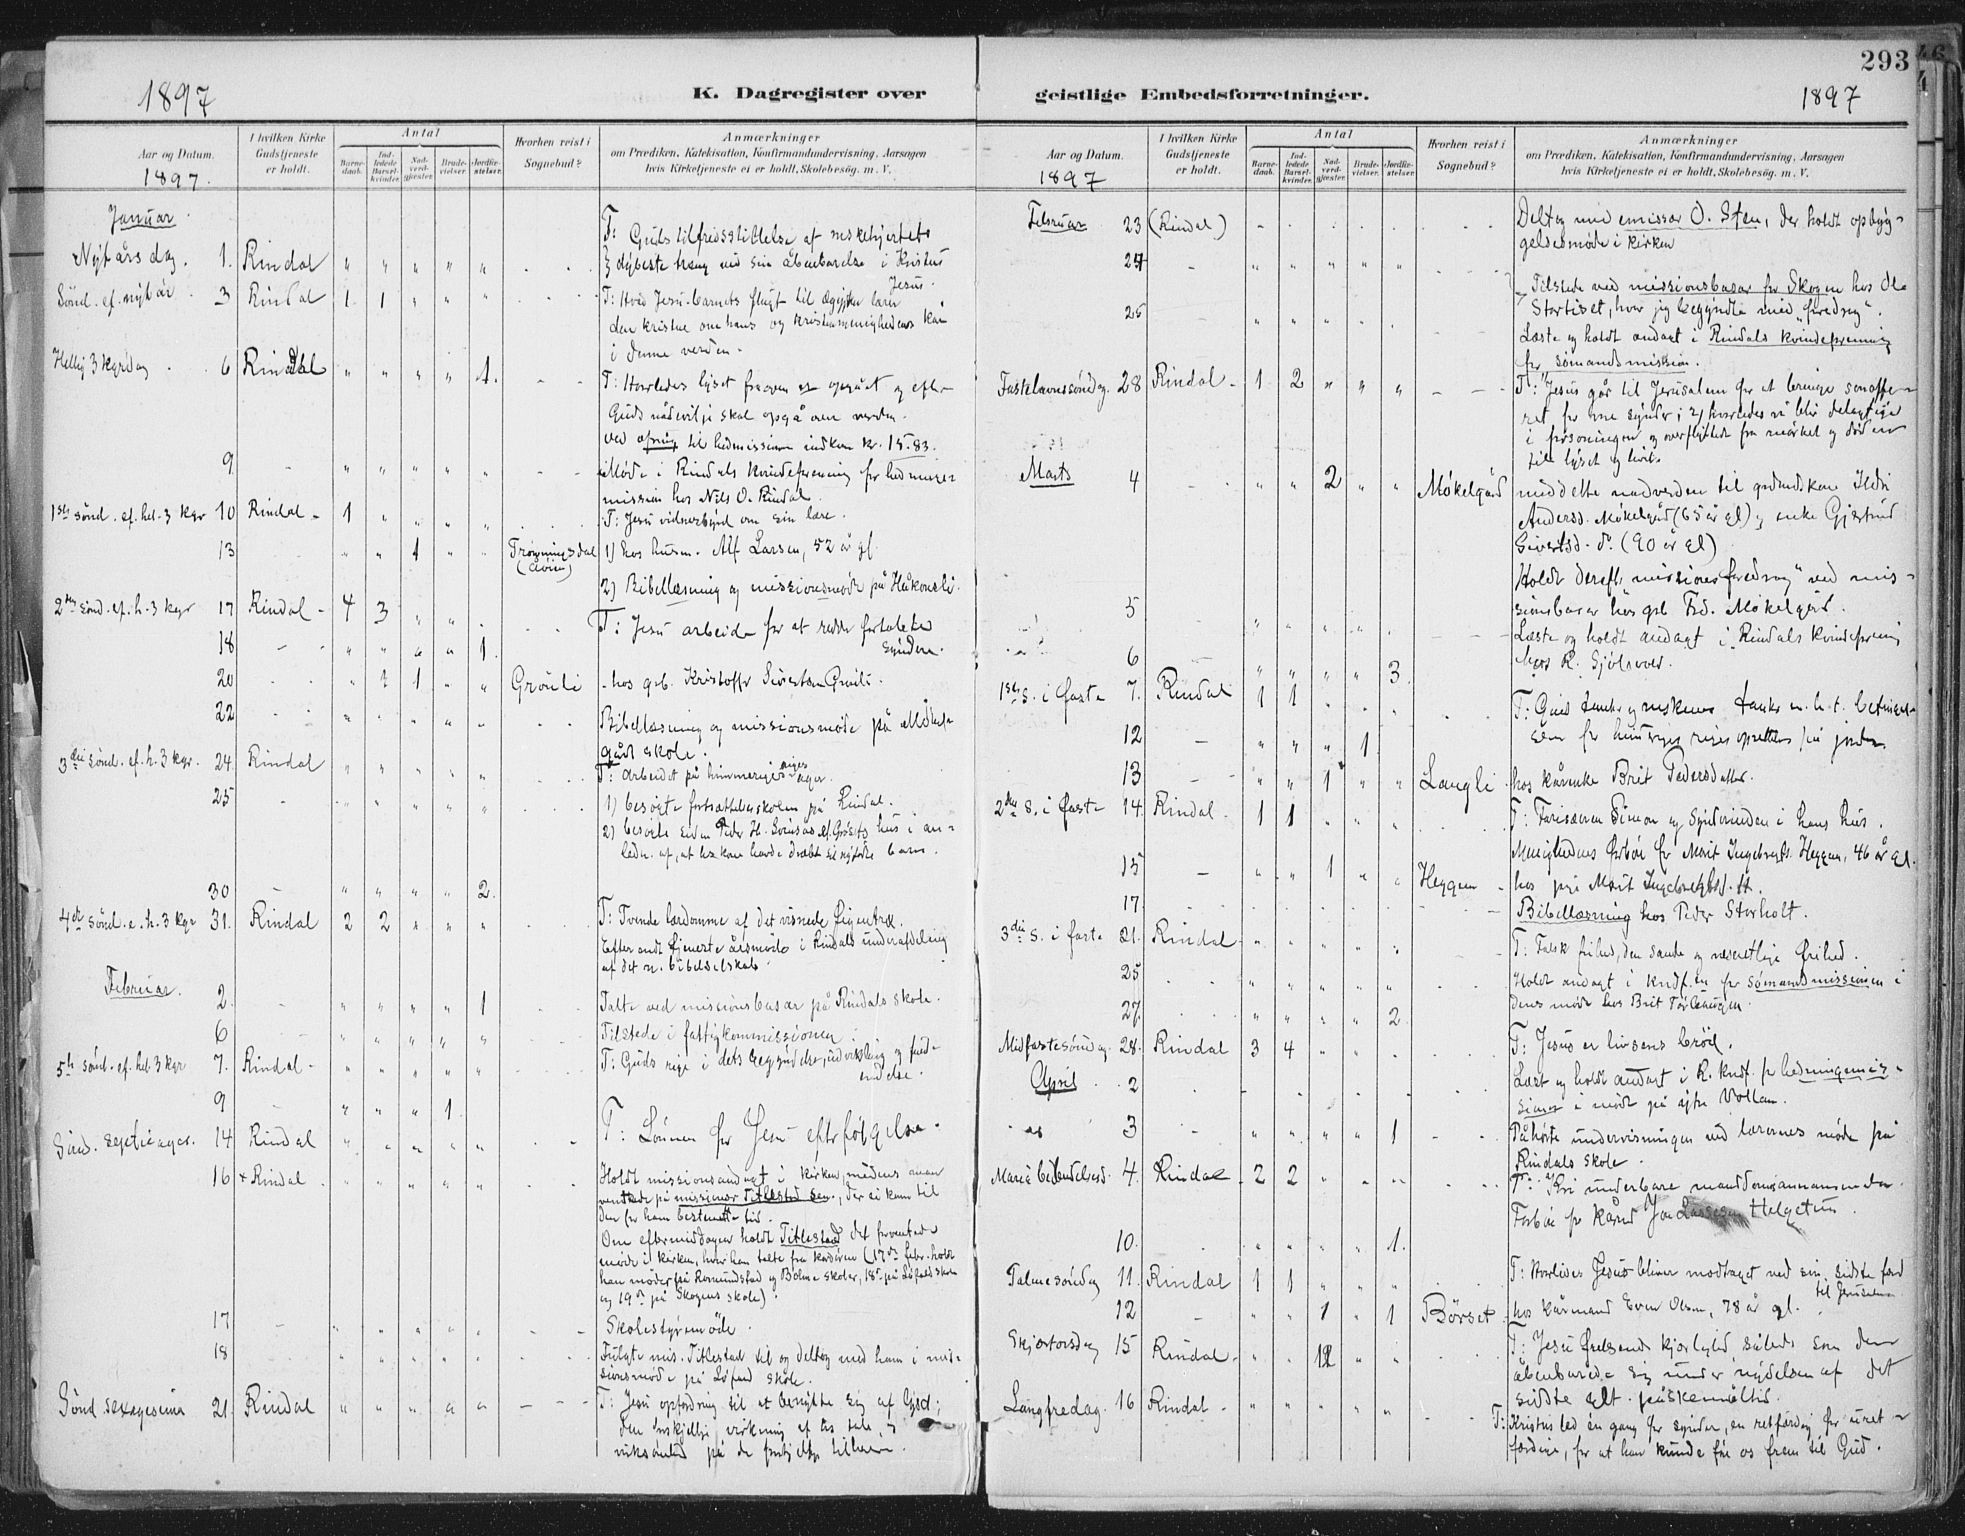 293
1897
K. Dagregister over
Aar og Datum.
1897.
I hvilken Kirke
Gudstjeneste
er holdt.
Antal
Barne-
daab.
Ind-
ledede
Barsel-
kvinder.
Nad-
verd-
gjester.
Brude-
vielser.
Jordfæ-
stelser.
Hvorhen reist i
Sognebud?
Anmærkninger
om Prædiken, Katekisation, Konfirmandundervisning, Aarsagen
hvis Kirketjeneste ei er holdt, Skolebesøg. m. V.
Januar.
Nytårsdag. 1. Rindal " " " " "
T: Guds tilfredsstillelse af
dybeste trang ved sin åbenbarelse i Kristus
Jesus.
Sønd. ef. nytår 3 Rindal 1 1 " " "
T: Hvad Jesu-barnets flugt til Ægypten lærer
den kristne om hans og kristenmenighedens kår
i denne verden.
Hellig 3 kgrsdag 6 Rindal " " " " 1.
T: Hvorledes lyset
Guds nådevilje skal opgå over verden.
Ved ofring til hedmissionen indkom kr. 15.83.
9 - " " " " "
Møde i Rindals kvindeforening for
mission hos Nils O. Rindal.
1ste sønd. ef. hel. 3 kgr 10 Rindal - 1 " " " "
T: Jesu vidnesbyrd om sin lære.
13 " " 1 " " Trønningsdal
1) hos husm. Alf Larsen, 52 år gl.
2) Bibellæsning og missionsmøde på Håkonsli.
2den sønd. ef. h. 3 kgr 17 Rindal - 4 3 " "
T: Jesu arbeide for at redde fortabte
syndere.
18 - " " " " 1.
20 " " 1 " " Grønli - hos grb. Kristoffer Sivertsen Grønli.
22 " " " " "
Bibellæsning og missionsmøde på
gård skole.
3die sønd. ef. h. 3 kgr. 24. Rindal " " " " "
T: Arbeidet på himmeriges ager.
25 - " " " " "
1) besøgte fortsættelsesskolen på Rindal.
2) besøgte hus i an-
ledn. af, at hs kone havde dræbt sit nyfødte barn.
30 " " " " 2.
4de sønd. e. h. 3 kgr 31. Rindal 2 2 " " "
T: Tvende lærdomme af det visnede figentræ.
Efter endt tjeneste årsmøde i Rindals underafdeling
af det n. bibelselskab.
Februar.
2. - " " " " 1
Talte ved missionsbasar på Rindals skole.
6 - " " " " "
Tilstede i fattigkommissionen.
5te sønd. ef. hel. 3 kgr 7. Rindal - " " " " "
T: Guds rige i dets begyndelse, udvikling og fuld-
endelse.
9 - " " " 1.
Sønd. septuages. 14 Rindal " " " " "
T: Lønnen for Jesu efterfølgelse.
16 Rindal " " " " "
Holdt missionsandagt i kirken, medens man
ventede på missionær Titlestad sen., der ei kom til
den for ham bestemte tid.
Om eftermiddagen holdt Titlestad det forventede
møde i kirken, hvor han talte fra (17de febr. holdt
han møder på Romundstad og Bolme skoler, 18de på Løfald skole
og 19de på Skogens skole).
17 - " " " " " - -
Skolestyremøde.
18 - " " " " "
Fulgte mis. Titlestad til og deltog med ham i mis-
sionsmøde på Løfald skole.
Sønd. sexagesima 21. Rindal " " " " " - - -
T: Jesu opfordring til at benytte sig af Gsord;
den forskjellige virkning af hs tale,
på de forskjellige tilhørere.
geistlige Embedsforretninger.
1897
Aar og Datum.
1897
I hvilken Kirke
Gudstjeneste
er holdt.
Antal
Barne-
daab.
Ind-
ledede
Barsel-
kvinder.
Nad-
verd-
gjester.
Brude-
vielser.
Jordfæ-
stelser.
Hvorhen reist i
Sognebud?
Anmærkninger
om Prædiken, Katekisation, Konfirmandundervisning, Aarsagen
hvis Kirketjeneste ei er holdt, Skolebesøg. m. V.
Februar 23 (Rindal) - " " " "
Deltog med emissær O. Sten, der holdt opbyg-
gelsesmøde i kirken
24 - " " " " "
Tilstede ved missionsbasar for Skogen hos
Stortiset, hvor jeg begyndte med foredrag.
25 " " " " "
Læste og holdt andagt i Rindals kvindeforening
for sømandsmission.
Fastelavnssøndag. 28 Rindal - 1 2 " " "
T: "Jesus går til Jerusalem for at bringe sonoffe-
ret for vore synder; 2) hvorledes vi blir delagtige
i forsoningen og overflyttet fra mørket og døden
til lyset og livet.
Marts 4 - " " 2 " " Møkelgård
meddelte nadverden til
Andersd. Møkelgård (65 år gl) og enke Gjertrud
Sivertsd. do. (90 år gl)
Holdt derefter missionsforedrag ved mis-
sionsbasar hos grb Møkelgård.
5 " " " "
Læste og holdt andagt i Rindals kvindeforening
hos R. Sjølsvold.
6 " " " " 3.
1ste s. i faste 7. Rindal 1 1 " " "
T: Guds tanker og
rigets oprettelse på jorden.
12 - " " " 1
13 - " " 1 " " Langli hos kårenke Brit Pedersdatter.
2den s. i faste 14. Rindal. 1 1 " " "
T: Farisæeren Simon og Synderinden i hans hus.
Menighedens forbøn for Marit Ingebrigts. Heggem, 46 år gl.
15 - " " 1 " " Heggem - hos Marit Ingebrigtsd. H.
17.
Bibellæsning hos Peder Storholt.
3die s. i faste 21. Rindal - " " " "
T: Falsk frihed, den sande og væsentlige frihed.
25 " " " " "
Holdt andagt i kndf.en for sømandsmissionen i
dens møde hos Brit
27. " " " " 2
Midfastesøndag. 28. Rindal 3 4 " " "
T: Jesus er livsens brød.
April 2
Læst og holdt andagt i R. kndf. for hedningemis-
sionen i møde på ytre Vollan.
3 - " " " " 1
Påhørte undervisningen ved lærernes møde på
Rindals skole.
Mariæ bebudelsesd. 4. Rindal - 2 2 " " "
Forbøn for kårmd Helgetun.
10. " " " " 1.
Palmesøndag 11. Rindal 1 1 " " "
T: Hvorledes Jesus bliver modtaget ved sin sidste færd
til Jerusalem
12 - " " 1 " 1 Børset - hos kårmand Even Olsen, 78 år gl.
Skjærtorsdag 15 Rindal - " " 12 " "
T: Jesu frelsende kjærlighed således som den
åbenbarede sig under nydelsen af det
sidste glt. påskemåltid.
Langfredag. 16 Rindal - " " " " "
T: Kristus led én gang for synder, en retfærdig for uret-
færdige, for at han kunde føre os frem til Gud.